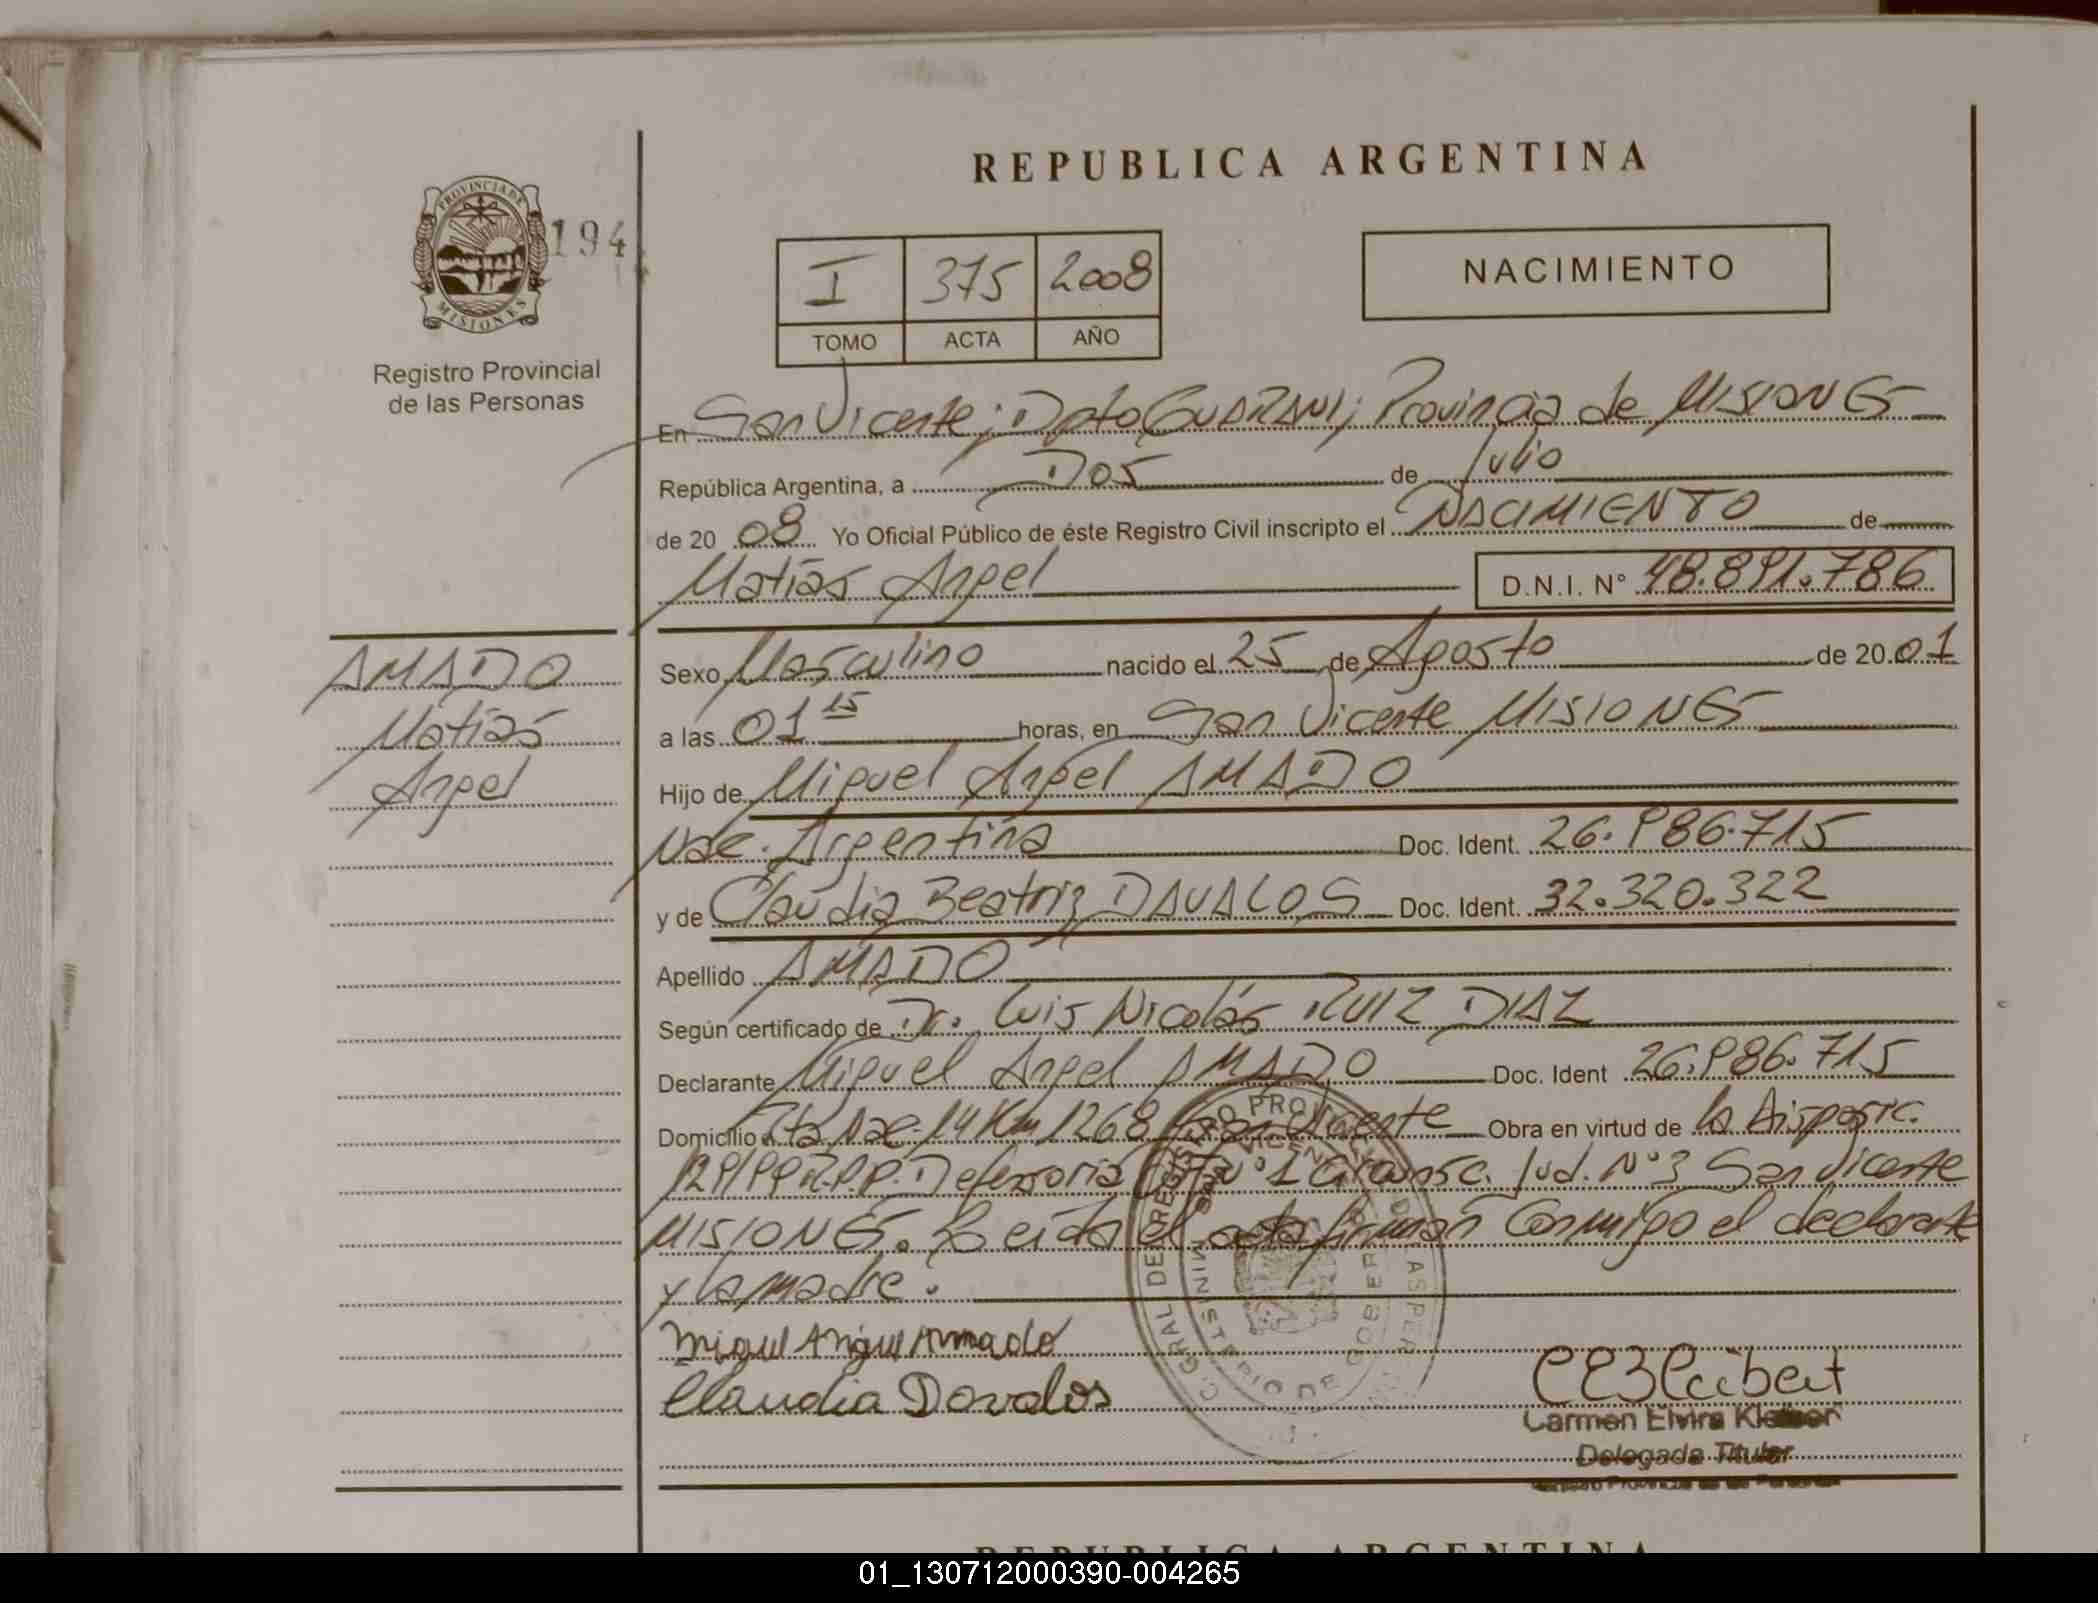 REPUBLICA ARGENTINA
PROVINCIA DE
MISIONES
194
Registro Provincial
de las Personas
I 375 2008
TOMO ACTA AÑO
NACIMIENTO
En San Vicente; Dpto GUARANI; Provincia de MISIONES
República Argentina, a Dos de Julio
de 20 08 Yo Oficial Público de éste Registro Civil inscripto el NACIMIENTO de
Matías Angel D.N.I. Nº 48.891.786
AMADO
Matías
Angel
Sexo Masculino nacido el 25 de Agosto de 20 01
a las 01 15 horas, en San Vicente MISIONES
Hijo de Miguel Angel AMADO
Nac. Argentina Doc. Ident. 26.986.715
y de Claudia Beatriz DAVALOS Doc. Ident. 32.320.322
Apellido AMADO
Según certificado de Dr. Luis Nicolás RUIZ DIAZ
Declarante Miguel Angel AMADO Doc. Ident 26.986.715
Domicilio Rta Nac. 14 Km 1268 San Vicente Obra en virtud de la Disposic.
Defensoria Nº 1 Circunsc. Jud. Nº 3 San Vicente
MISIONES. Leida el acta firman conmigo el declarante
y la madre.
Miguel Angel Amado
Claudia Davalos
Carmen Elvira
Delegada Titular
MINISTERIO DE GOBIERNO
REPUBLICA ARGENTINA
01_130712000390-004265